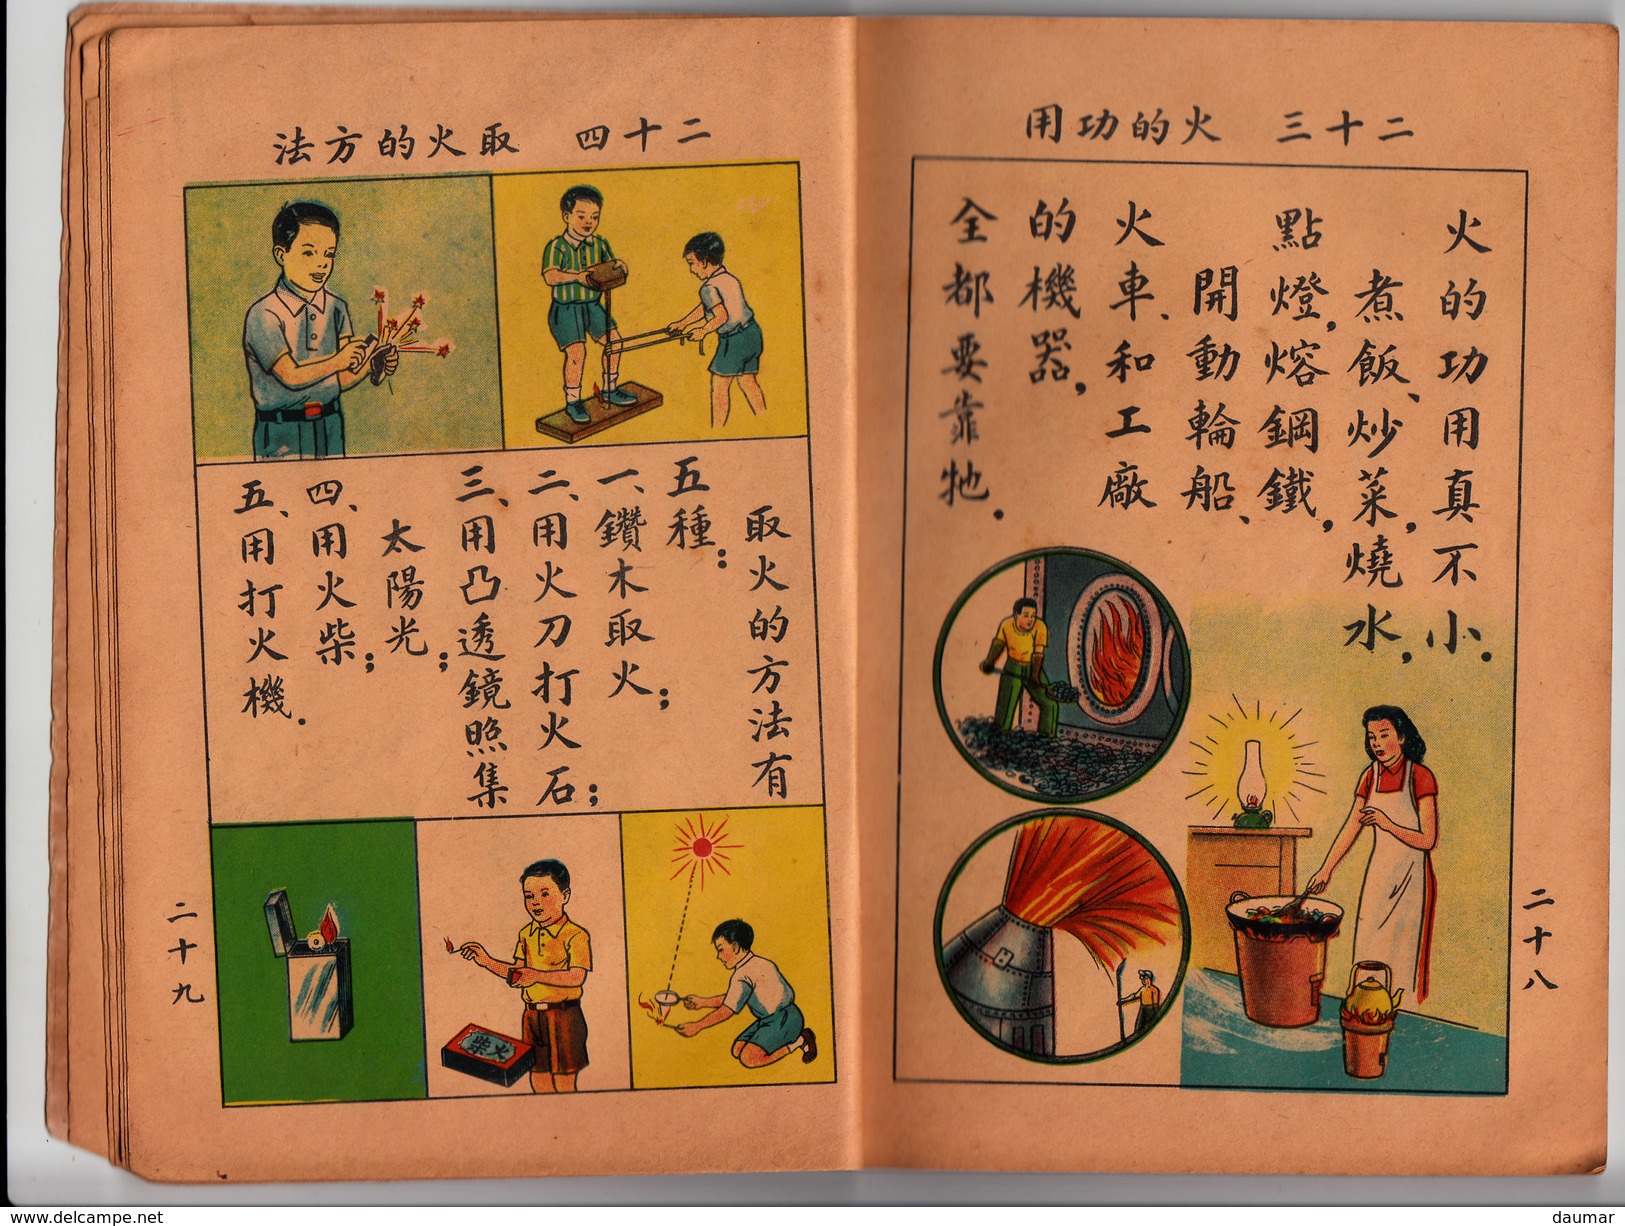 二十三　火的功用
火的功用真不小．
煮飯、炒菜，燒水，
點燈，熔鋼鐵，
開動輪船、
火車、和工廠
的機器，
全都要靠牠．
二十八
二十四　取火的方法
取火的方法有
五種：
一、鑽木取火；
二、用火刀打火石；
三、用凸透鏡照集
太陽光；
四、用火柴；
五、用打火機．
火柴
二十九
www.delcampe.net
daumar